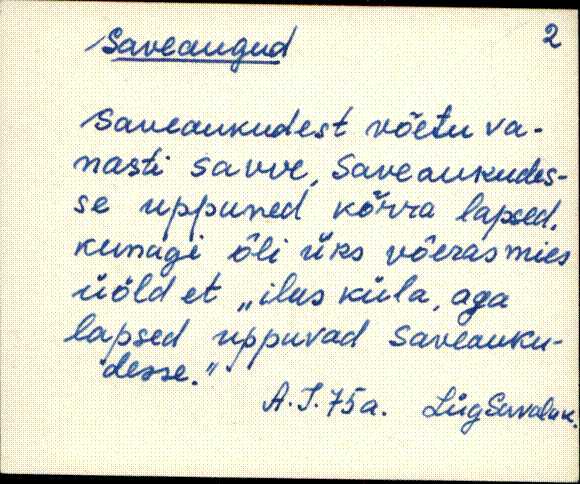 2
Saveaugud
Saveaukudest võetu va-
nasti savve, Saveaukudes-
se uppuned kõrra lapsed.
kunagi õli üks võerasmies
üöld et „ilus küla, aga
lapsed uppuvad saveauku-
desse."
A. J. 75a.